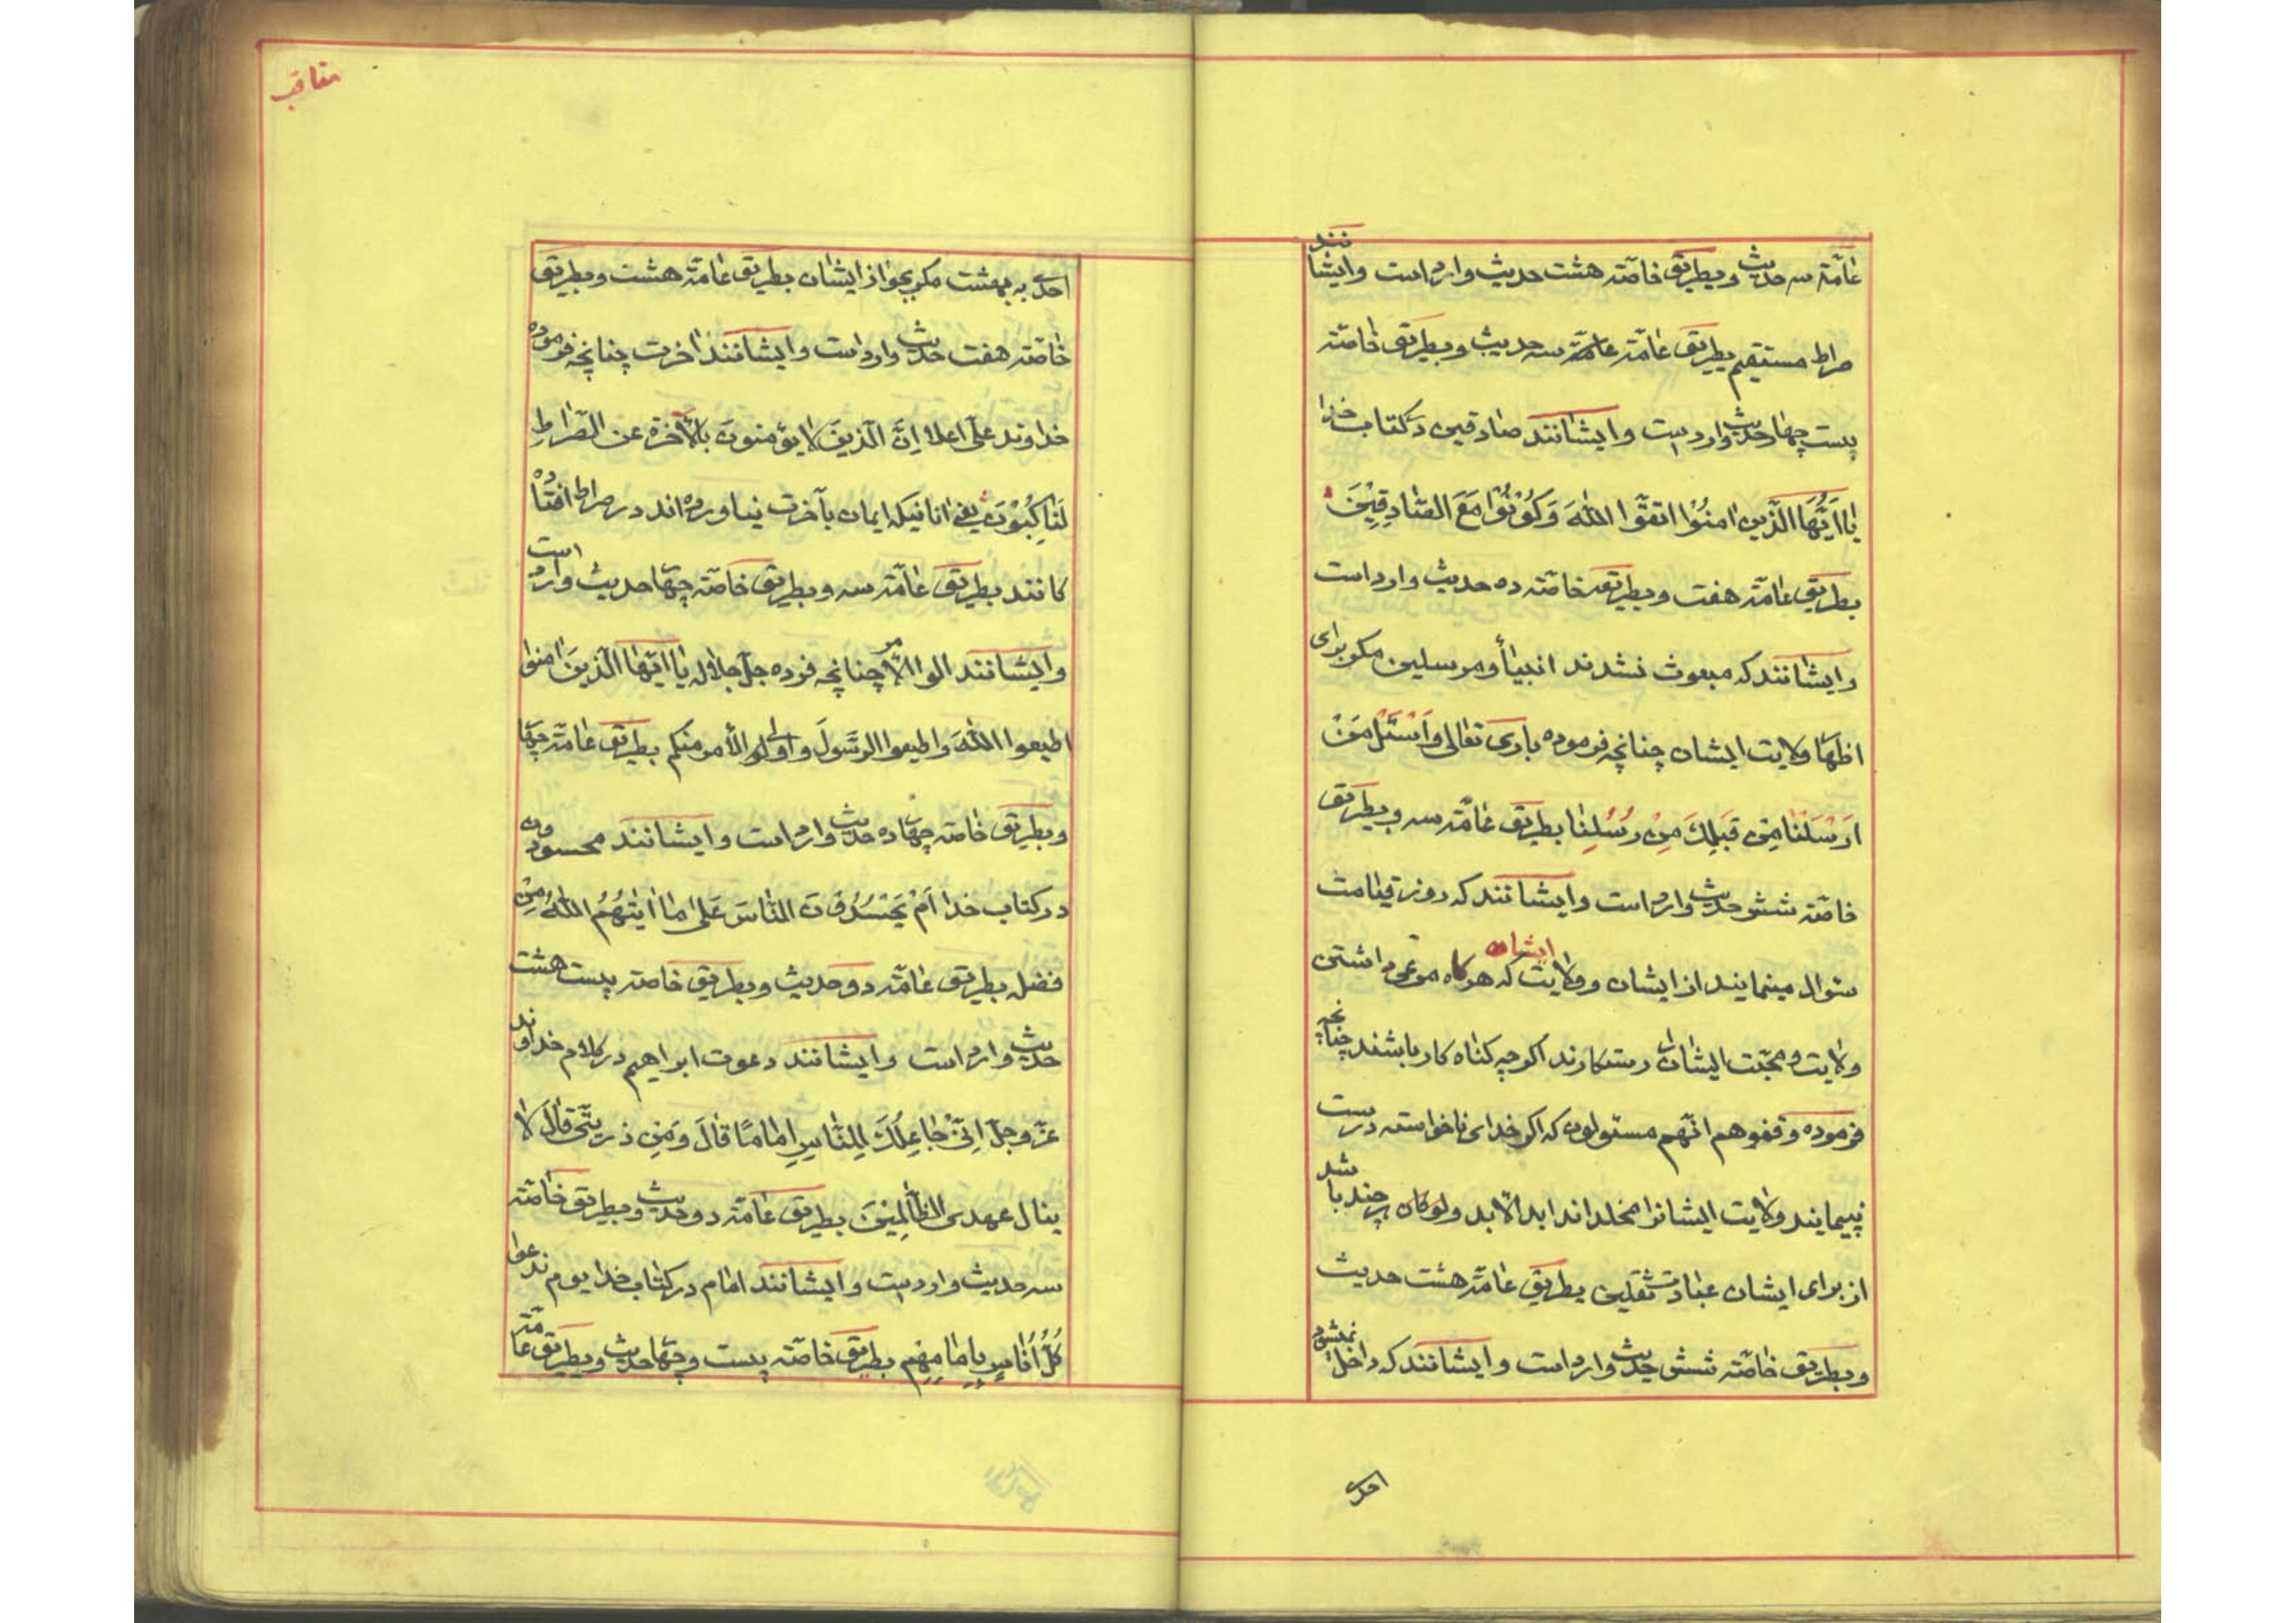 عامّة سه حدیث و بطریق خاصّه هشت حدیث وارد است و ایشانند
صراط مستقیم بطریق عامّة عامّة سه حدیث و بطریق خاصّه
بیست چهار حدیث وارد است و ایشانند صادقین در کتاب خدا
یا ایُّها الّذین امنُوا اتقوّا اللهَ وَ کُوْنُوْا مَعَ الصّادِقِیْنَ
بطریق عامّه هفت و بطریقه خاصّه ده حدیث وارد است
و ایشانند که مبعوث نشدند انبیأ و مرسلین مکر برای
اظهار ولایت ایشان چنانچه فرموده باری تعالی وَاسْئَلْ مَنْ
اَرْسَلْنا مِنْ قَبلِكَ مِنْ رُسُلِنا بطریق عامّه سه و بطریق
خاصّه شش حدیث وارد است و ایشانند که روز قیامت
سئوال مینمایند از ایشان و ولایت ایشان که هرکاه مرعی داشتن
ولایت و محبّت ایشان را رستکارند اکرچه کناه کار باشند چنانچه
فرموده وقفوهم انّهم مسئولون که اکر خدای ناخواسته درست
نپیمایند ولایت ایشانرا مخلداند ابد الآبد ولو کان بر چند باشد
از برای ایشان عبادت ثقلین بطریق عامّه هشت حدیث
و بطریق خاصّه شش حدیث وارد است و ایشانند که داخل نمیشود
احدی
مناقب
احدی به بهشت مکر بجواز ایشان بطریق عامّه هشت و بطریق
خاصّه هفت حدیث وارد است و ایشانند اخرت چنانچه فرموده
خداوند علّی اعلا اِنَّ الّذینَ لا یؤمنونَ بالآخره عن الصّراطِ
لَناکِبُوْنَ یعنی انانیکه ایمان بآخرت نیاورده اند در صراط افتاده
کانند بطریق عامّه سه و بطریق خاصّه چهار حدیث وارد است
و ایشانند الوالامر چنانچه فرده جلّ جلاله یا ایّها الّذینَ امنوا
اطیعوا اللهَ و اطیعوا الرّسولَ و اولی الأمر منکم بطریق عامّه چهار
و بطریق خاصّه چهارده حدیث وارد است و ایشانند محسودون
در کتاب خدا اَمْ یَحْسُدُوْنَ النّاسَ عَلی ما اٰتیهُمُ اللهُ مِنْ
فضله بطریق عامّه دو حدیث و بطریق خاصّه بیست هشت
حدیث وارد است و ایشانند دعوت ابراهیم در کلام خداوند
عزّ و جلّ اِنّیْ جاعِلُكَ لِلنّاسِ اِمامًا قالَ وَ مِنْ ذریتّی قالَ لا
ینال عهدی الظّالِمِیْنَ بطریق عامّه دو حدیث و بطریق خاصّه
سه حدیث وارد است و ایشانند امام در کتاب خدا یوم ندعوا
کُلَّ اُناسٍ بِاِمامِهِم بطریق خاصّه بیست و چهار حدیث و بطریق عامّه